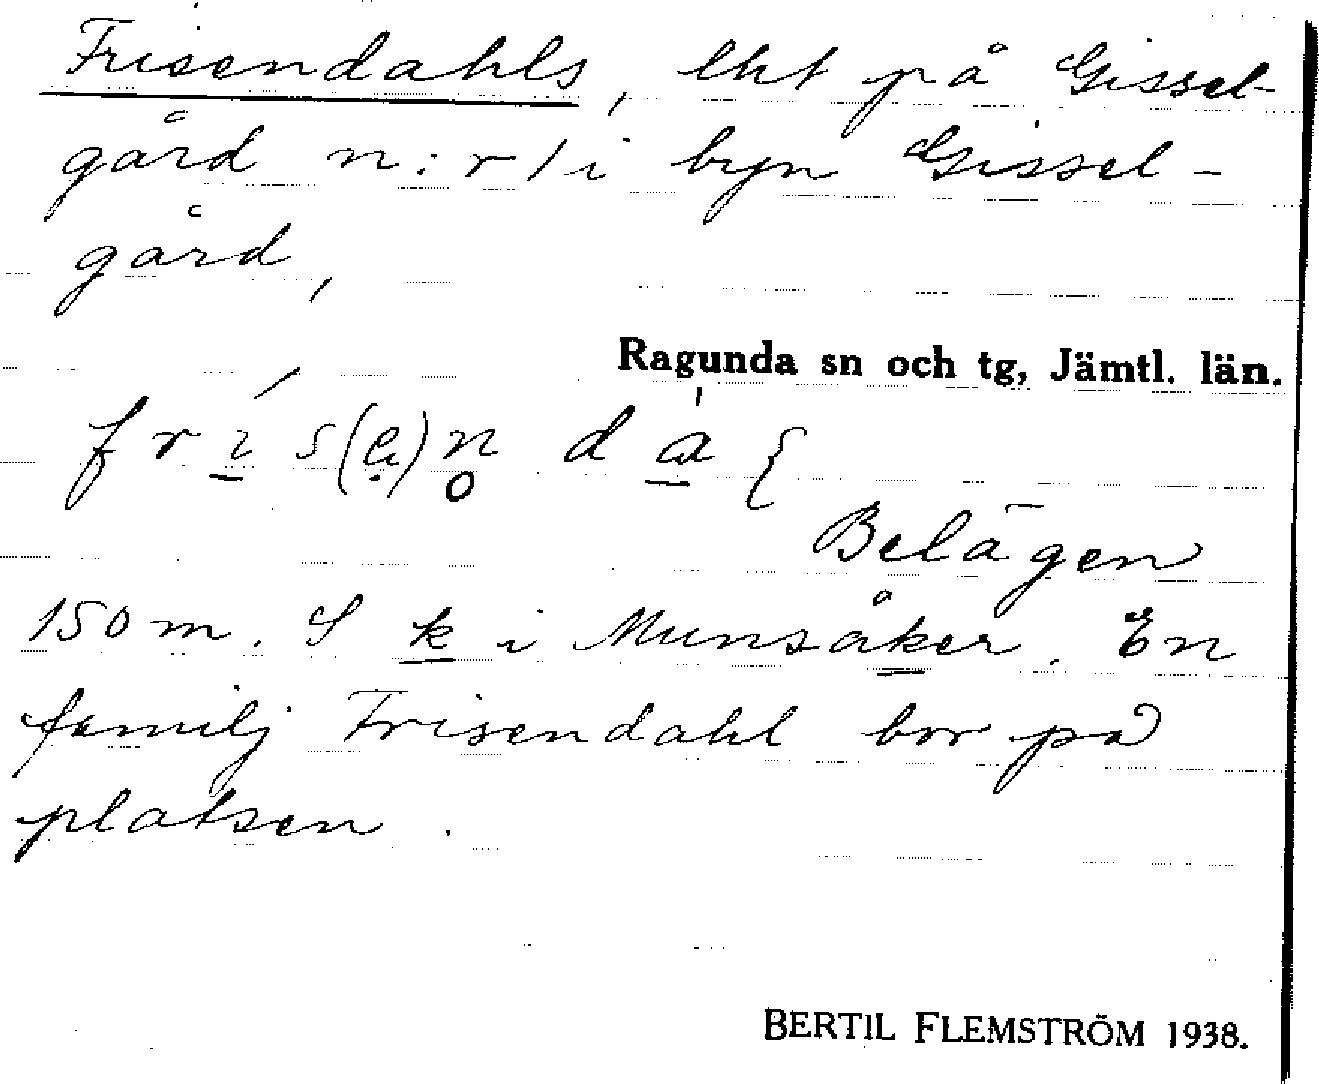 Frisendahls, lht på Gissel-
gård n:r 1 i byn Gissel-
gård,
Ragunda sn och tg, Jämtl. län.
Belägen
150 m. S k i Munsåker. En
familj Frisendahl bor på
platsen.
BERTIL FLEMSTRÖM 1938.